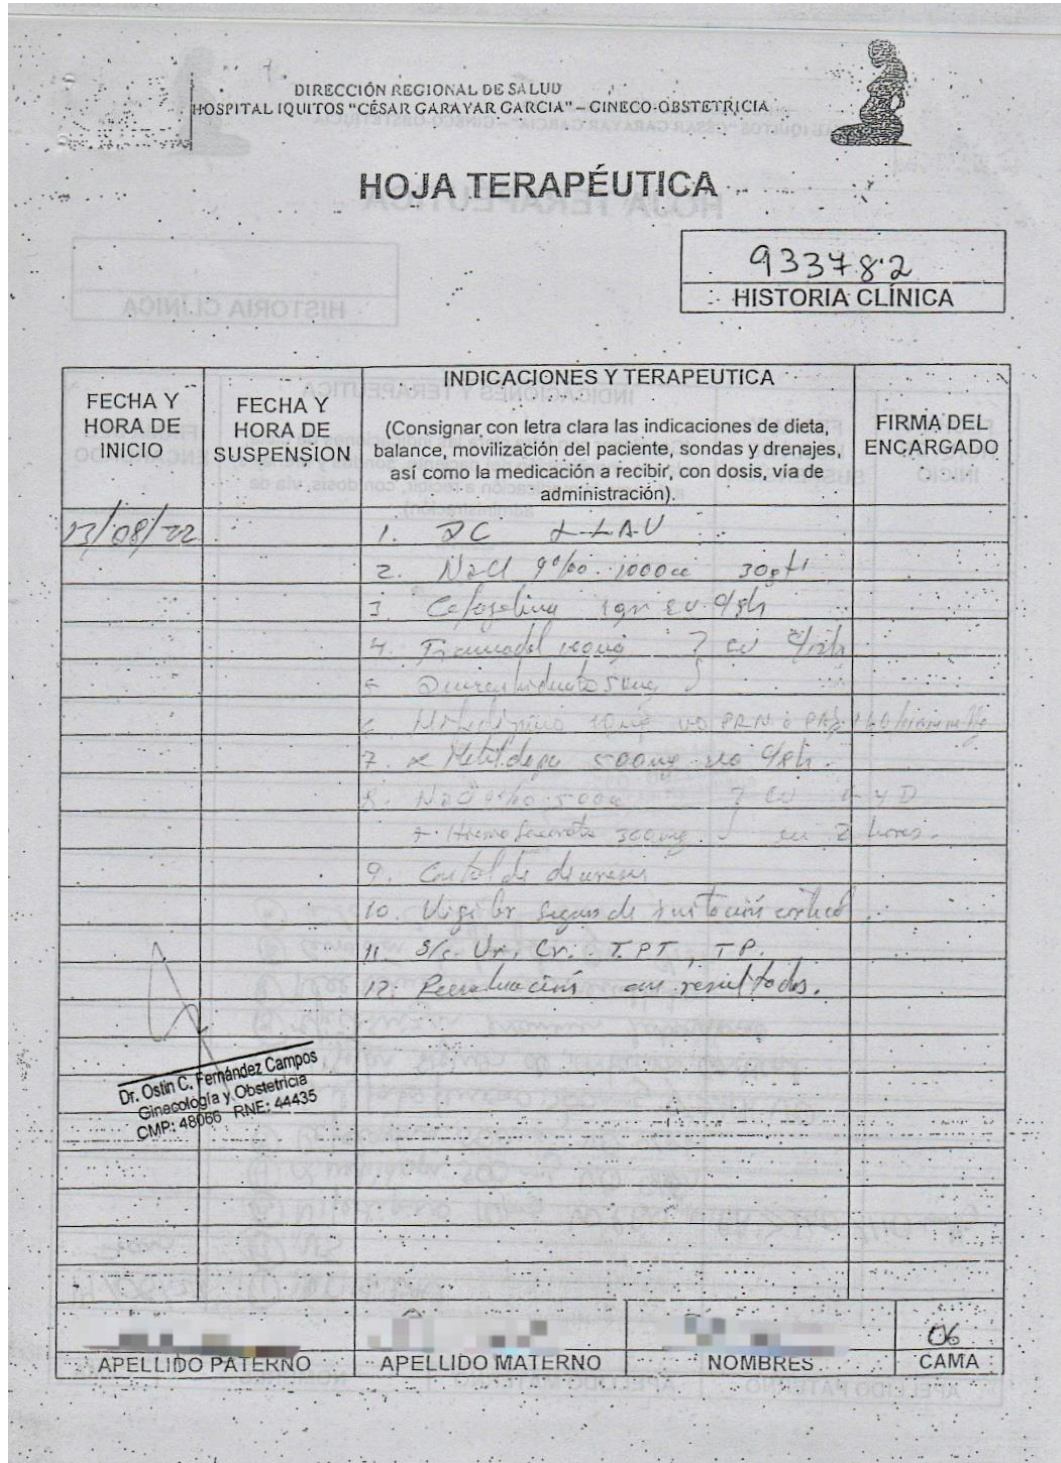 DIRECCIÓN REGIONAL DE SALUD
HOSPITAL IQUITOS "CÉSAR GARAYAR GARCIA" – GINECO-OBSTETRICIA
HOJA TERAPÉUTICA
933782
HISTORIA CLÍNICA
FECHA Y HORA DE INICIO
FECHA Y HORA DE SUSPENSION
INDICACIONES Y TERAPEUTICA
(Consignar con letra clara las indicaciones de dieta,
balance, movilización del paciente, sondas y drenajes,
así como la medicación a recibir, con dosis, vía de
administración).
FIRMA DEL ENCARGADO
13/08/22
1. DC + LAV
2. NaCl 9‰ 1000cc 30gts
3. Cefazolina 1gr EV c/8h
4. Tramadol 100mg
5. Dimenhidrinato 50mg
6. Nifedipino 10mg VO PRN
7. Metildopa 500mg VO c/8h.
8. NaCl 9‰
+ Hierro Sacarato 300mg. en 2 horas.
9. Control de diuresis
10. Vigilar signos de
11. S/s. Ur, Cr. TPT, TP.
12. Reevaluación con resultados.
Dr. Ostin C. Fernández Campos
Ginecología y Obstetricia
CMP: 48066 RNE: 44435
06
APELLIDO PATERNO
APELLIDO MATERNO
NOMBRES
CAMA